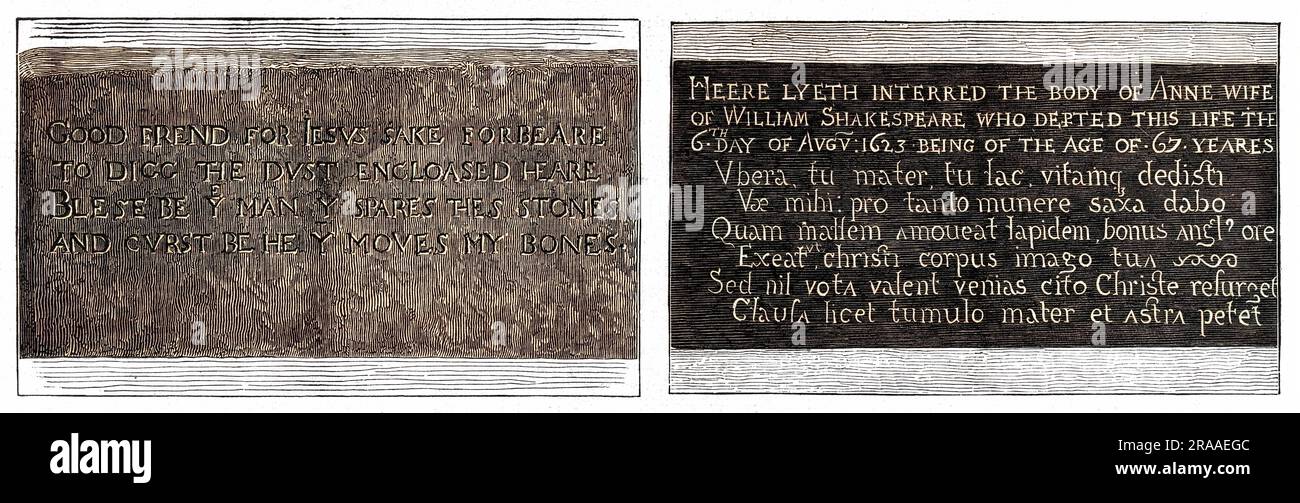 GOOD FREND FOR IESVS SAKE FORBEARE
TO DIGG THE DVST ENCLOASED HEARE
BLESE BE Yᴱ MAN Y SPARES THES STONES
AND CVRST BE HE Y MOVES MY BONES.
HEERE LYETH INTERRED THE BODY OF ANNE WIFE
OF WILLIAM SHAKESPEARE WHO DEPTED THIS LIFE THE
6·TH DAY OF AVGV̄: 1623 BEING OF THE AGE OF·67·YEARES
Vbera, tu mater, tu lac, vitamq dedisti
Væ mihi: pro tanto munere saxa dabo
Quam mallem amoueat lapidem, bonus angl' ore
Exeat ut, christi corpus imago tua
Sed nil vota valent venias cito Christe resurget
Clausa licet tumulo mater et astra petet
alamy
Image ID: 2RAAEGC
www.alamy.com